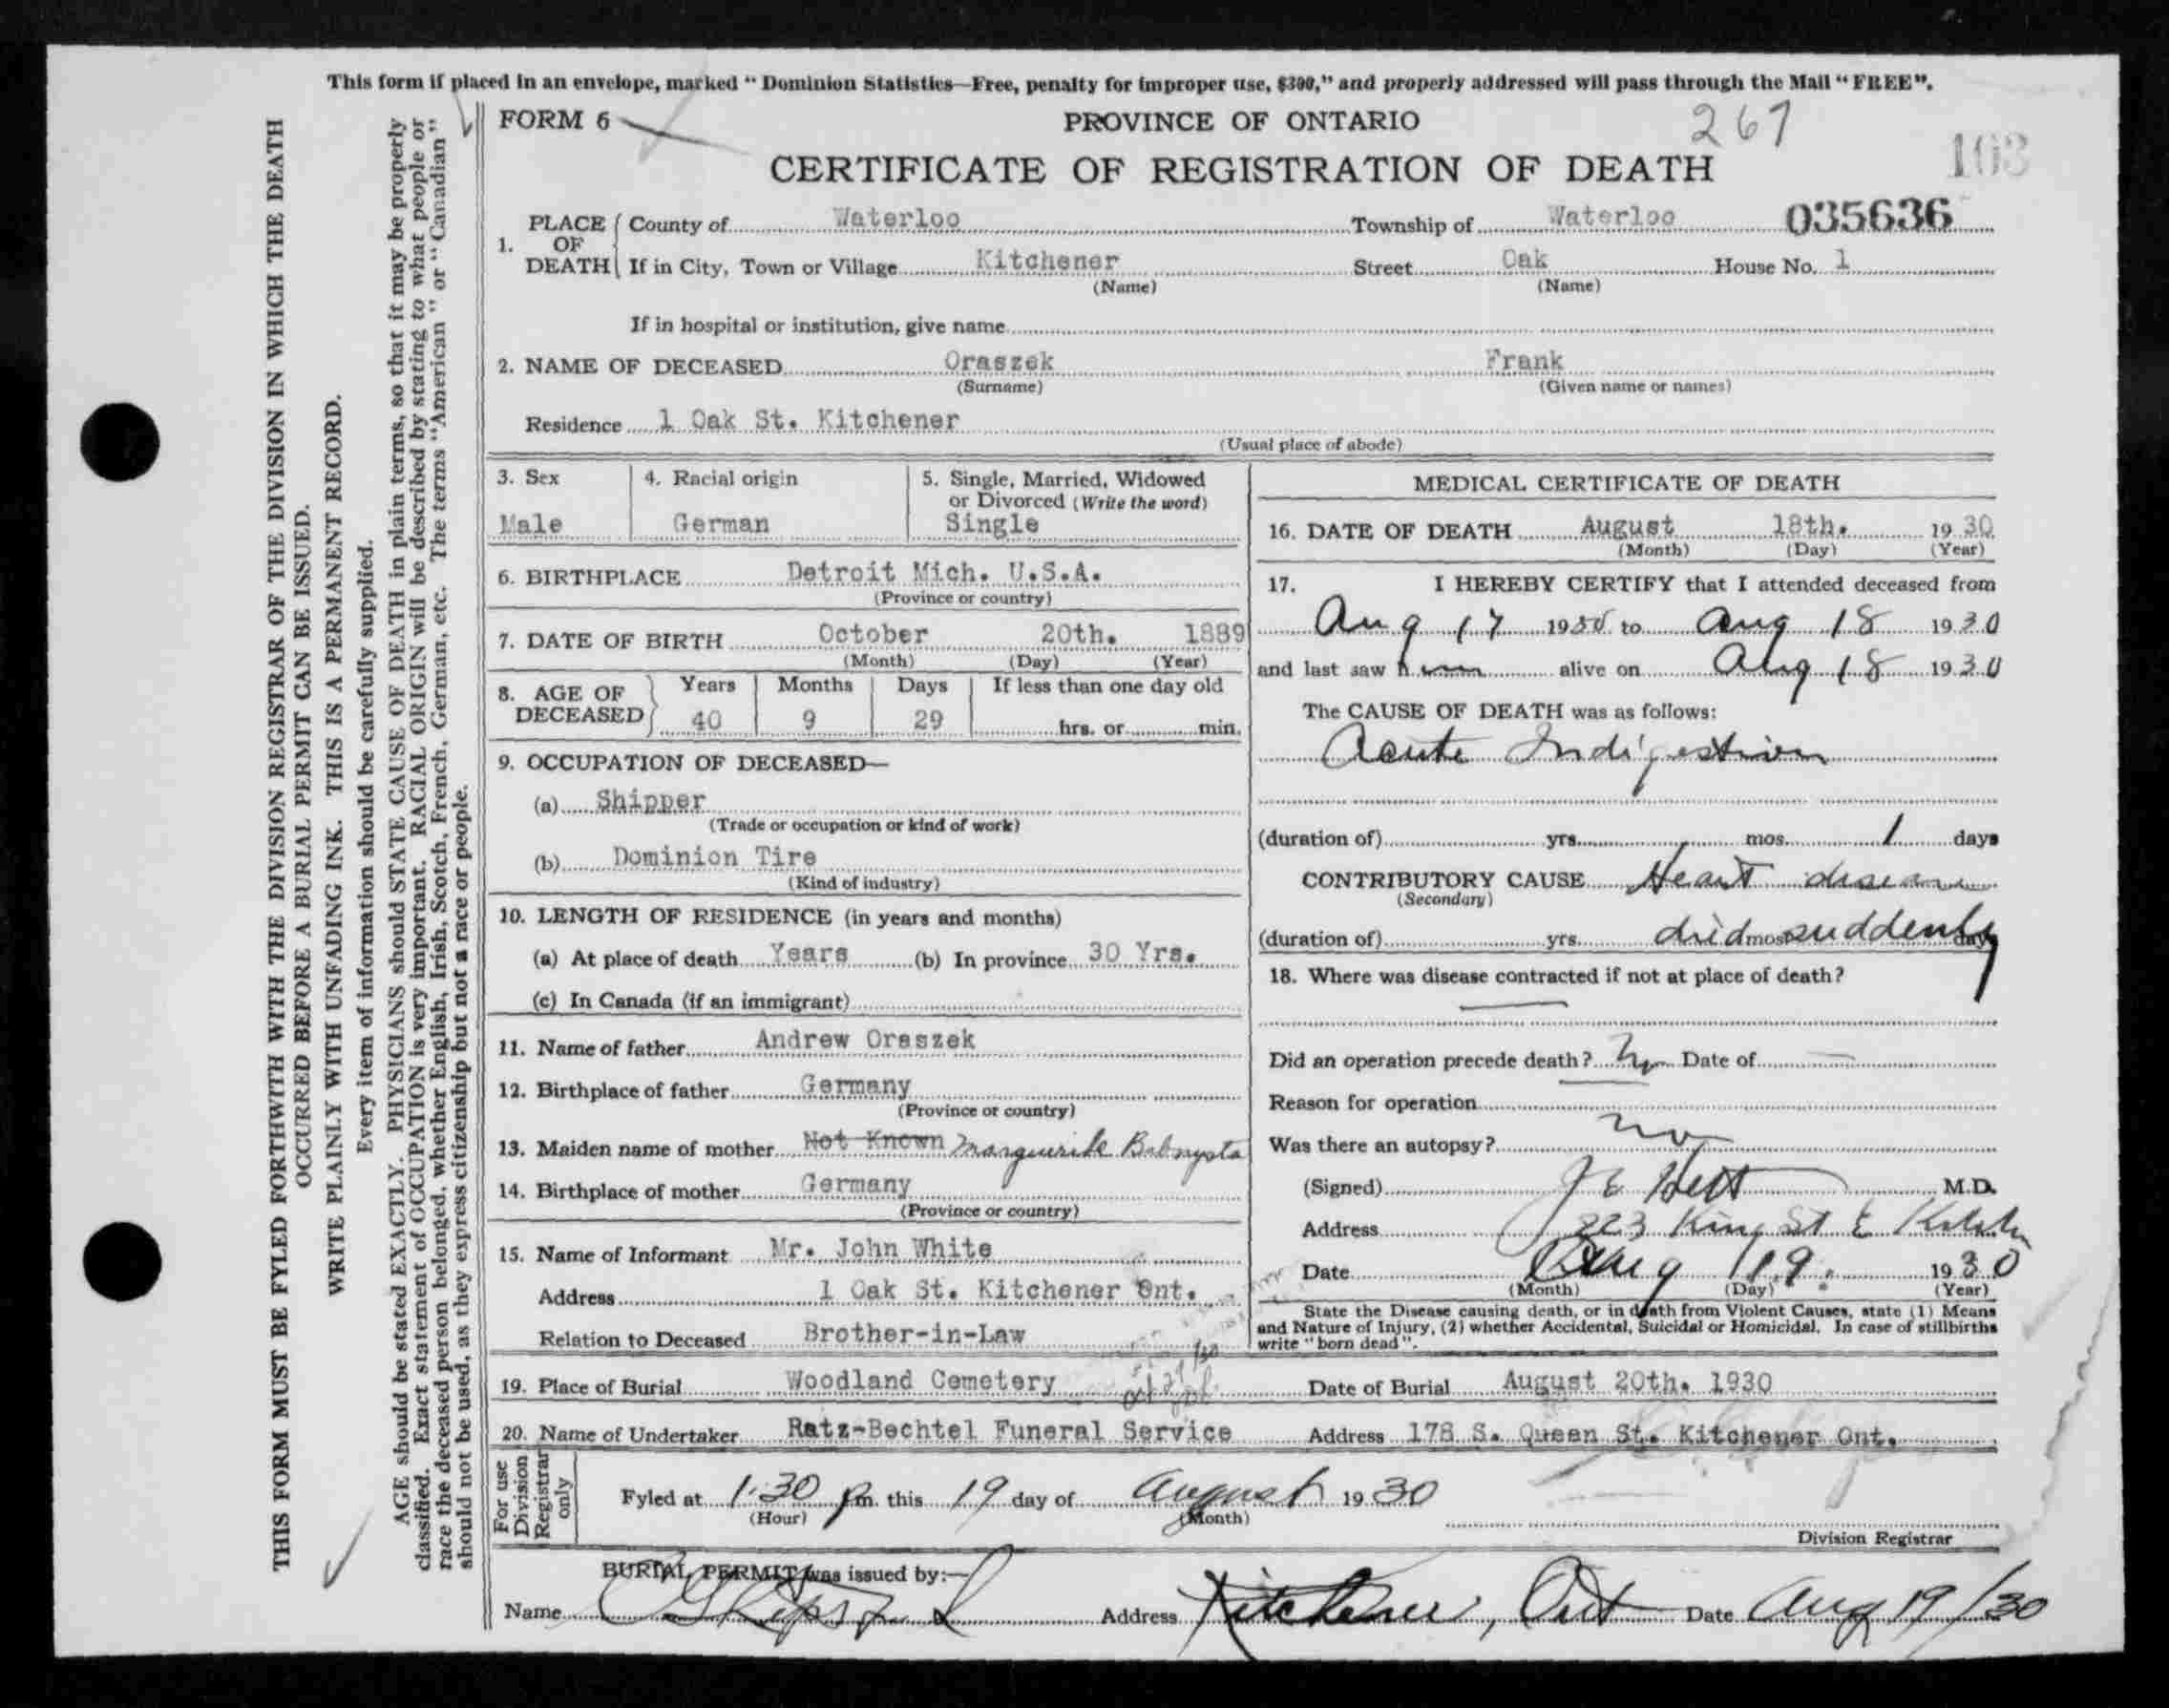 This form if placed in an envelope, marked “ Dominion Statistics—Free, penalty for improper use, $300,” and properly addressed will pass through the Mail “ FREE”.
FORM 6
PROVINCE OF ONTARIO
267
CERTIFICATE OF REGISTRATION OF DEATH
163
1. PLACE OF DEATH County of Waterloo Township of Waterloo 035636
If in City, Town or Village Kitchener Street Oak House No. 1
(Name) (Name)
If in hospital or institution, give name
2. NAME OF DECEASED Oraszek Frank
(Surname) (Given name or names)
Residence 1 Oak St. Kitchener
(Usual place of abode)
3. Sex
Male
4. Racial origin
German
5. Single, Married, Widowed
or Divorced (Write the word)
Single
6. BIRTHPLACE Detroit Mich. U.S.A.
(Province or country)
7. DATE OF BIRTH October 20th. 1889
(Month) (Day) (Year)
8. AGE OF DECEASED
Years Months Days If less than one day old
40 9 29 hrs. or min.
9. OCCUPATION OF DECEASED—
(a) Shipper
(Trade or occupation or kind of work)
(b) Dominion Tire
(Kind of industry)
10. LENGTH OF RESIDENCE (in years and months)
(a) At place of death Years (b) In province 30 Yrs.
(c) In Canada (if an immigrant)
11. Name of father Andrew Oraszek
12. Birthplace of father Germany
(Province or country)
13. Maiden name of mother Not Known Marguerite
14. Birthplace of mother Germany
(Province or country)
15. Name of Informant Mr. John White
Address 1 Oak St. Kitchener Ont.
Relation to Deceased Brother-in-Law
MEDICAL CERTIFICATE OF DEATH
16. DATE OF DEATH August 18th. 1930
(Month) (Day) (Year)
17. I HEREBY CERTIFY that I attended deceased from
Aug 17 1930 to Aug 18 1930
and last saw him alive on Aug 18 1930
The CAUSE OF DEATH was as follows:
Acute Indigestion
(duration of) yrs. mos. 1 days
CONTRIBUTORY CAUSE Heart disease
(Secondary)
(duration of) yrs. died mos. suddenly days
18. Where was disease contracted if not at place of death?
—
Did an operation precede death? No Date of —
Reason for operation
Was there an autopsy? no
(Signed) J E Hett M.D.
Address 223 King St E
Date Aug 19. 1930
(Month) (Day) (Year)
State the Disease causing death, or in death from Violent Causes, state (1) Means
and Nature of Injury, (2) whether Accidental, Suicidal or Homicidal. In case of stillbirths
write “born dead”.
19. Place of Burial Woodland Cemetery Date of Burial August 20th. 1930
20. Name of Undertaker Ratz-Bechtel Funeral Service Address 178 S. Queen St. Kitchener Ont.
For use
Division
Registrar
only
Fyled at 1.30 pm. this 19 day of August 1930
(Hour) (Month)
Division Registrar
BURIAL PERMIT was issued by:—
Name Address Kitchener, Ont Date Aug 19/30
THIS FORM MUST BE FYLED FORTHWITH WITH THE DIVISION REGISTRAR OF THE DIVISION IN WHICH THE DEATH
OCCURRED BEFORE A BURIAL PERMIT CAN BE ISSUED.
WRITE PLAINLY WITH UNFADING INK. THIS IS A PERMANENT RECORD.
Every item of information should be carefully supplied.
AGE should be stated EXACTLY. PHYSICIANS should STATE CAUSE OF DEATH in plain terms, so that it may be properly
classified. Exact statement of OCCUPATION is very important. RACIAL ORIGIN will be described by stating to what people or
race the deceased person belonged, whether English, Irish, Scotch, French, German, etc. The terms “American” or “Canadian”
should not be used, as they express citizenship but not a race or people.